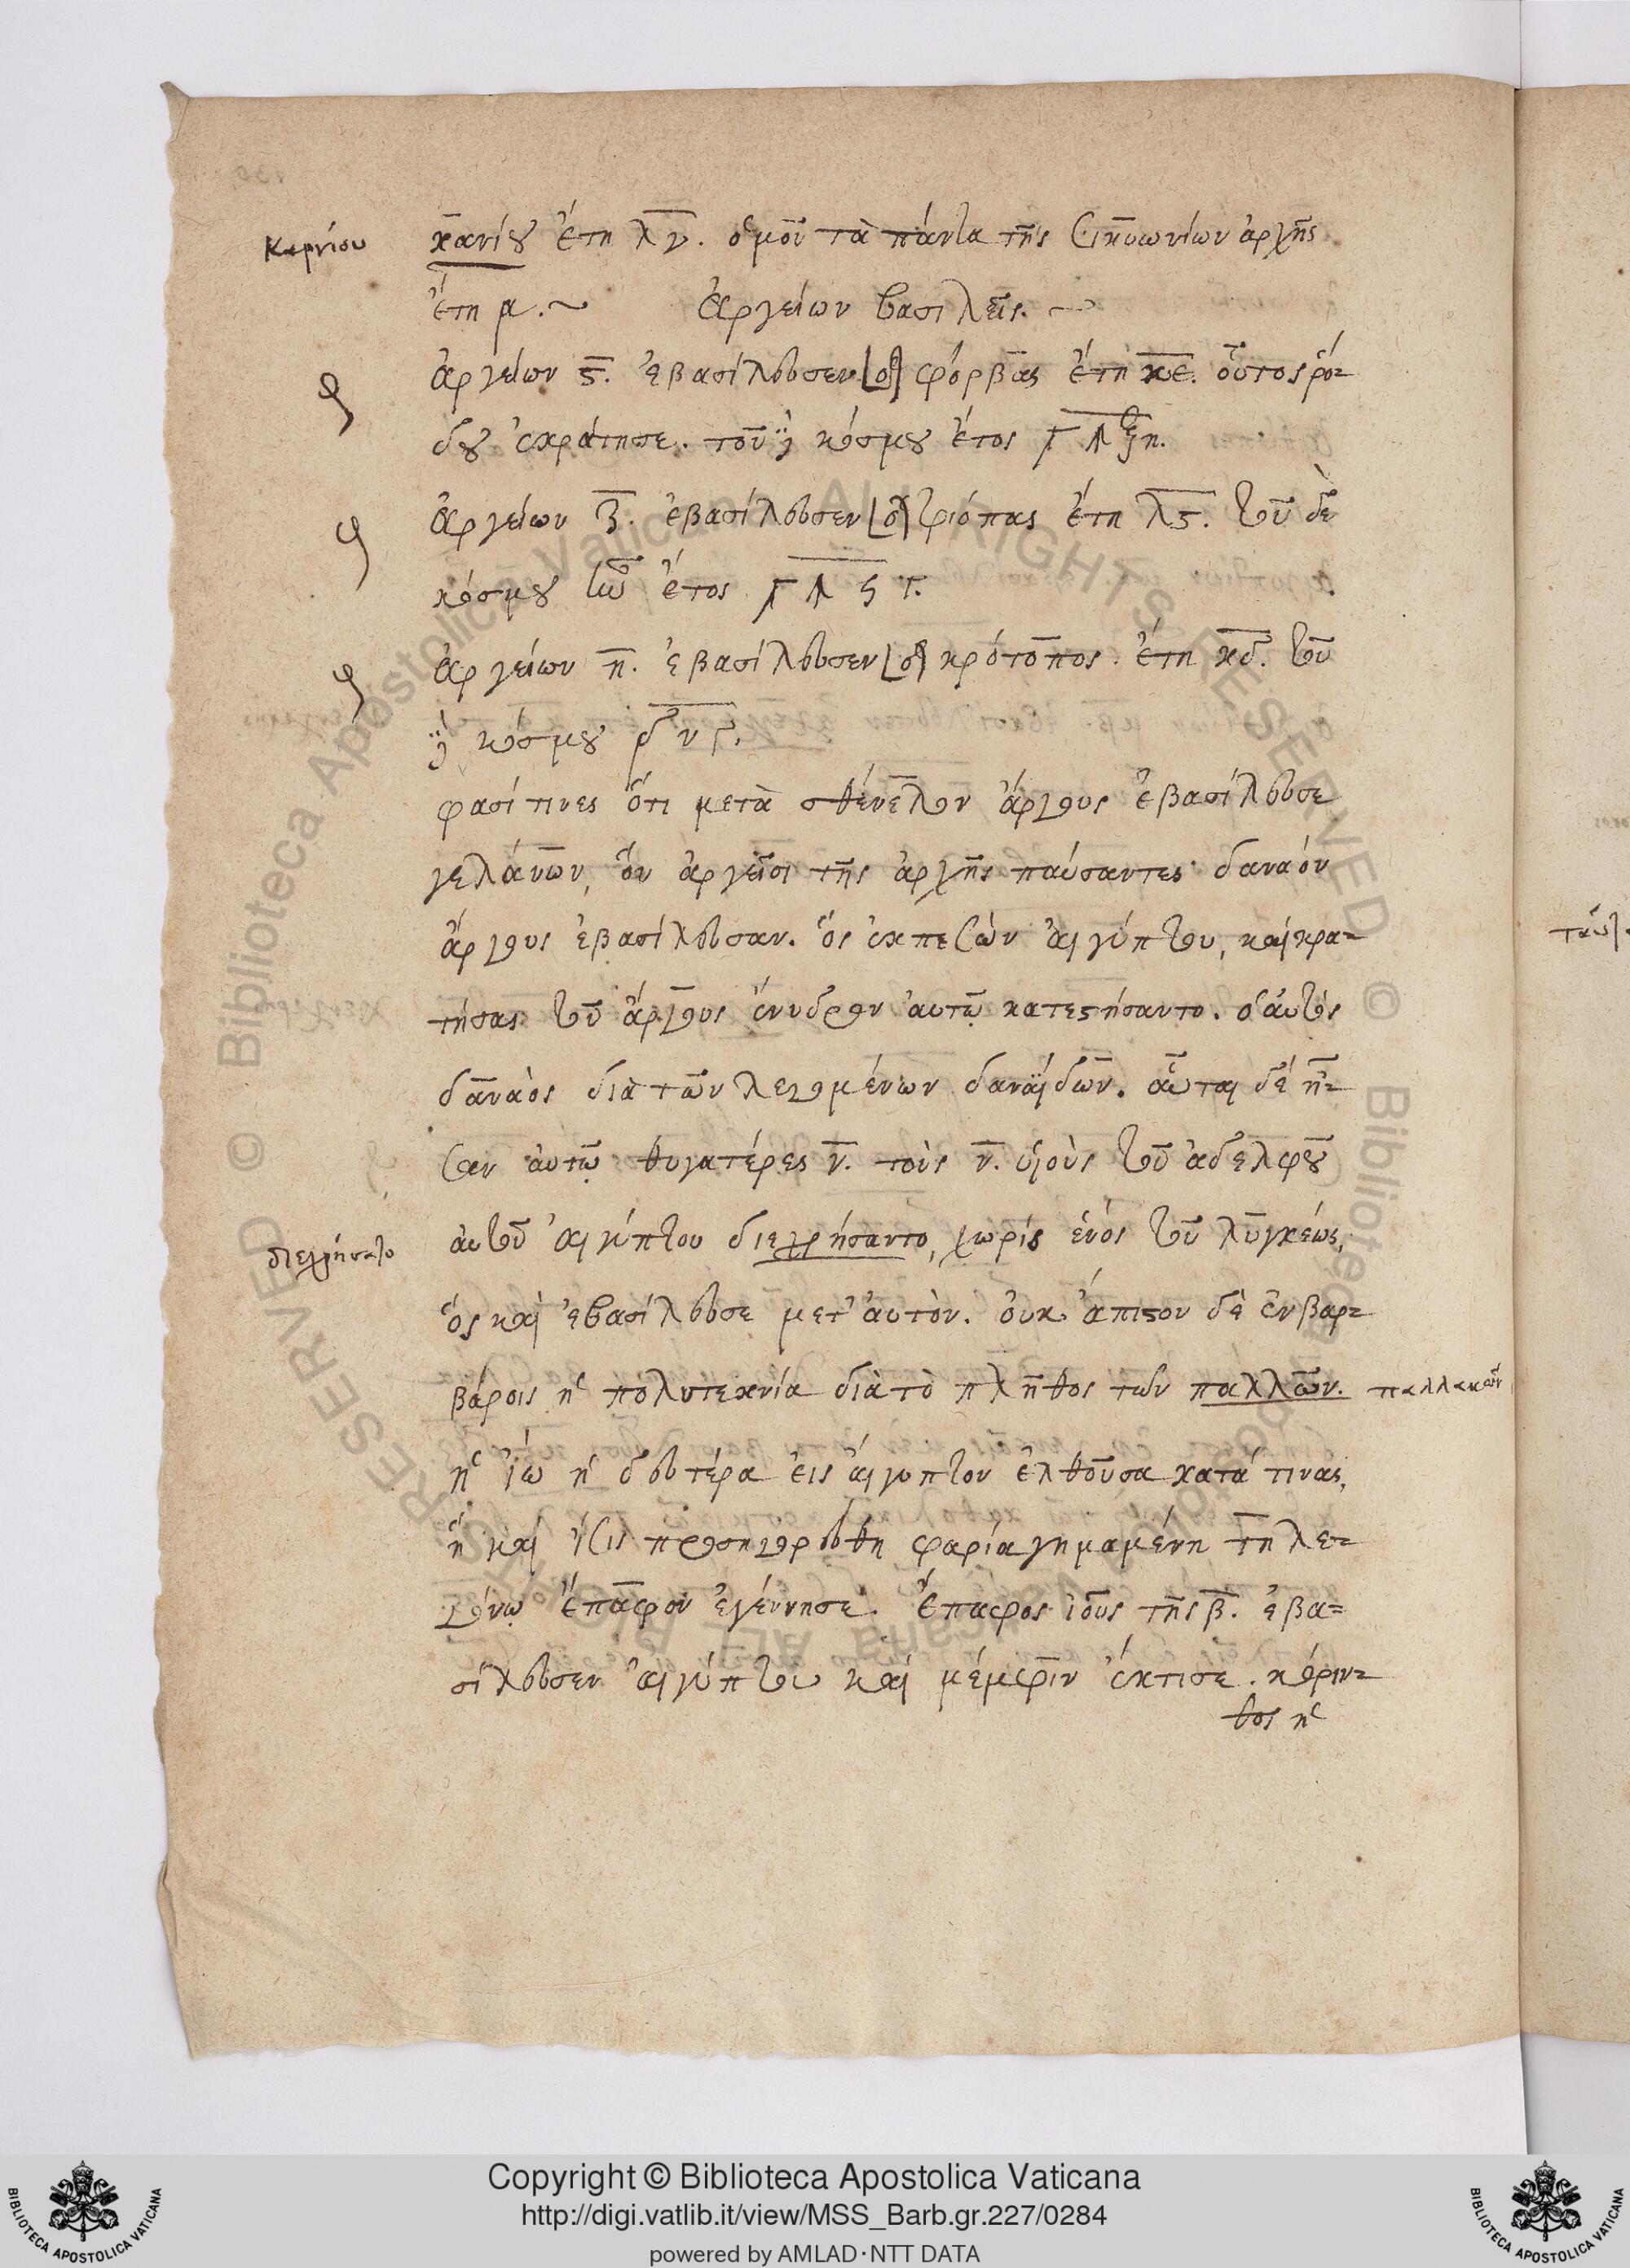 Καρνίου
χανίου ἔτη λγ. ὁμοῦ τὰ πάντα τῆς Σικυωνίων ἀρχῆς
ἔτη α. ~ ἀργείων βασιλεῖς. ~
ἀργείων ϛ. ἐβασίλευσεν [ὁ] φόρβας ἔτη κε. οὗτος ῥό-
δου ἐκράτησε. τοῦ κόσμου ἔτος
ἀργείων ζ. ἐβασίλευσεν [ὁ] τριόπας ἔτη λϛ. τοῦ δὲ
κόσμου ἔτος
ἀργείων η. ἐβασίλευσεν [ὁ] κρότοπος. ἔτη κδ. τοῦ
κόσμου
φασί τινες ὅτι μετὰ σθένελον ἄργους ἐβασίλευσε
γελάνων, ὃν ἀργεῖοι τῆς ἀρχῆς παύσαντες δαναόν
ἄργους ἐβασίλευσαν. ὃς ἐκπεσὼν αἰγύπτου, καὶ κρα-
τήσας τοῦ ἄργους ἔνυδρον αὐτῷ κατεστήσαντο. ὁ αὐτὸς
δαναὸς διὰ τῶν λεγομένων δαναΐδων. αὗται δέ ἦ-
σαν αὐτῷ θυγατέρες ν. τοὺς ν. υἱοὺς τοῦ ἀδελφοῦ
διεχρήσατο
αὐτοῦ αἰγύπτου διεχρήσαντο, χωρὶς ἑνὸς τοῦ λυγκέως,
ὃς καὶ ἐβασίλευσε μετ' αὐτὸν. οὐκ ἄπιστον δὲ ἐν βαρ-
βάροις ἡ πολυτεκνία διὰ τὸ πλῆθος τῶν παλλῶν. παλλακῶν
ἡ ἰὼ ἡ δευτέρα εἰς αἴγυπτον ἐλθοῦσα κατά τινας,
ἣ καὶ ἶσις προσηγορεύθη φαρία γημαμένη τηλε-
γόνῳ ἔπαφον ἐγέννησε. Ἔπαφος ἰοῦς τῆς β. ἐβα-
σίλευσεν αἰγύπτου καὶ μέμφιν ἔκτισε. κόριν-
θος ἡ
Copyright © Biblioteca Apostolica Vaticana
http://digi.vatlib.it/view/MSS_Barb.gr.227/0284
powered by AMLAD·NTT DATA